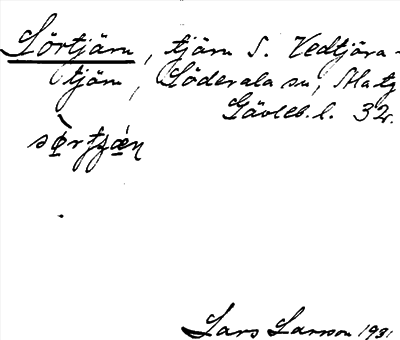 Sörtjärn, tjärn S. Vedtjära-
tjärn, Söderala sn, Matz
Gävleb. l. 32.
sò̱rtjǽɳ
Lars Larsson 1931